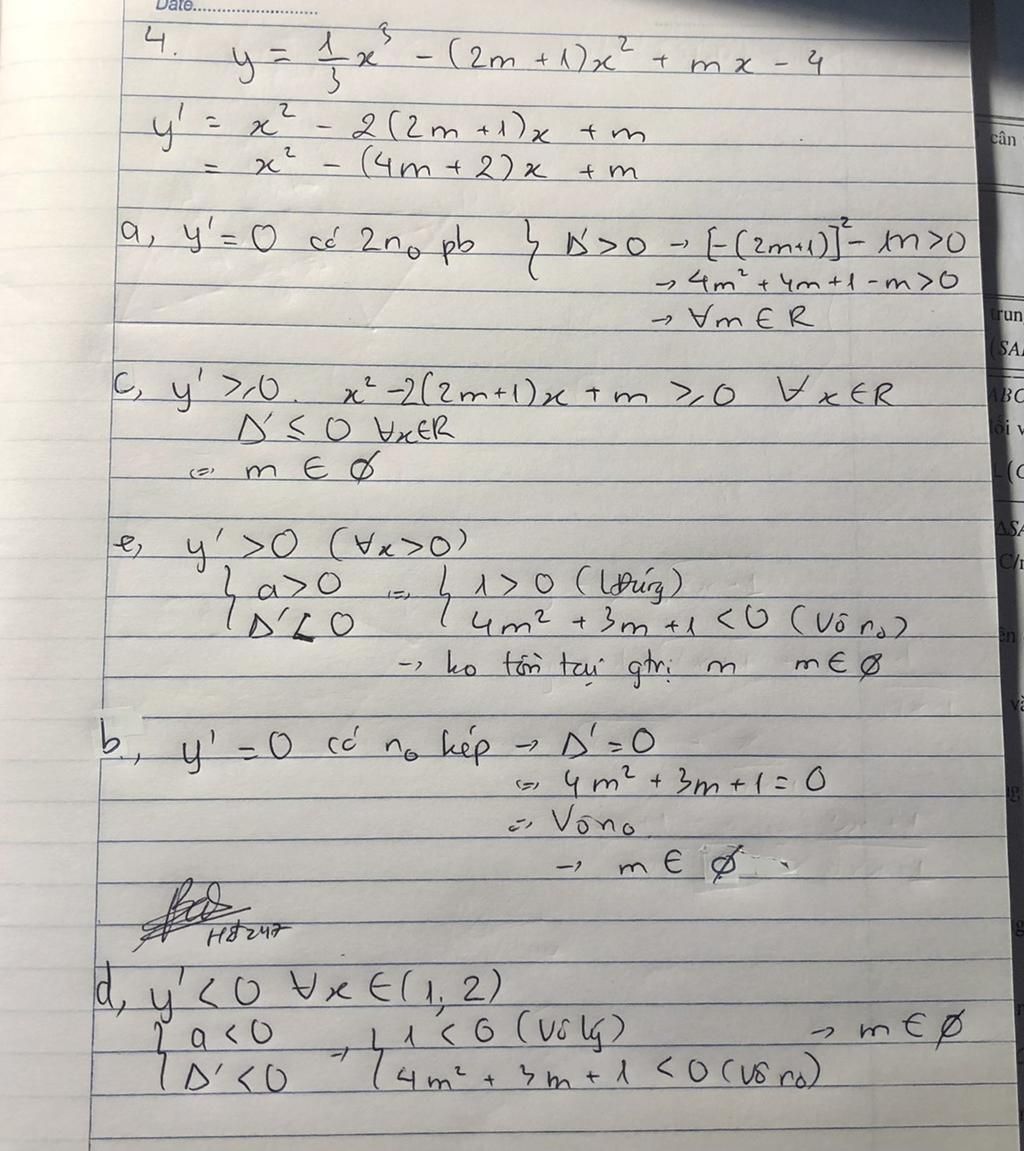 Date.............................
4. y = 1/3 x³ - (2m + 1)x² + mx - 4
y' = x² - 2(2m + 1)x + m
= x² - (4m + 2)x + m
a, y' = 0 có 2 n₀ pb { Δ' > 0 → [-(2m+1)]² - 1m > 0
→ 4m² + 4m + 1 - m > 0
→ ∀m ∈ R
c, y' ≥ 0. x² - 2(2m+1)x + m ≥ 0 ∀x ∈ R
Δ' ≤ 0 ∀x∈R
⇔ m ∈ ∅
e, y' > 0 (∀x > 0)
{ a > 0 ⇔ { 1 > 0 (lđúng)
Δ' < 0 4m² + 3m + 1 < 0 (Vô n₀)
→ ko tồn tại gtrị m m ∈ ∅
b, y' = 0 có n₀ kép → Δ' = 0
⇔ 4m² + 3m + 1 = 0
⇔ Vô n₀
→ m ∈ ∅
d, y' < 0 ∀x ∈ (1, 2)
{ a < 0 → { 1 < 0 (Vô lý) → m ∈ ∅
Δ' < 0 4m² + 3m + 1 < 0 (Vô n₀)
cân
trun
(SA
ABC
L(C
ΔSA